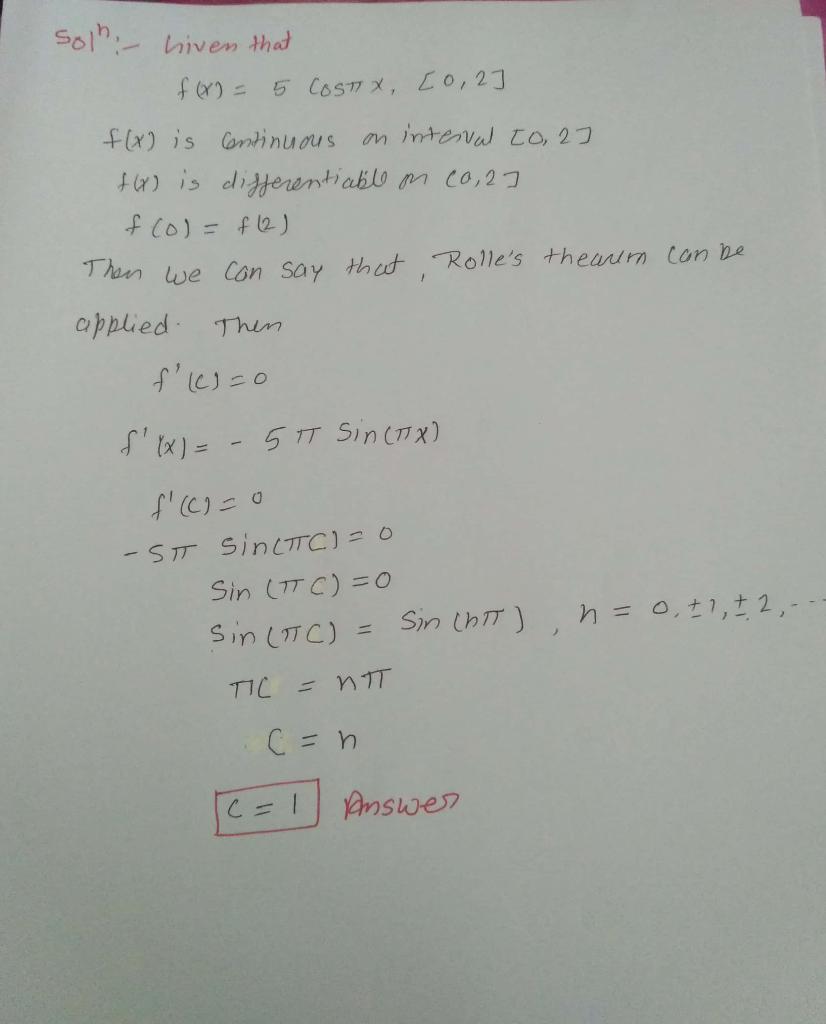 Solⁿ:- Given that
f(x) = 5 Cosπx, [0,2]
f(x) is Continuous on interval [0, 2]
f(x) is differentiable on (0,2]
f(0) = f(2)
Then we can say that, Rolle's thearem can be
applied. Then
f'(c) = 0
f'(x) = - 5π Sin(πx)
f'(c) = 0
-5π Sin(πC) = 0
Sin (πC) = 0
Sin (πC) = Sin (nπ), n = 0, ±1, ±2, ---
πC = nπ
C = n
C = 1 Answer